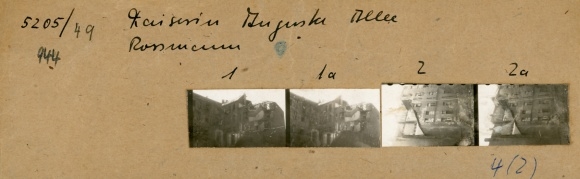 5205/49 Kaiserin Augusta Allee
944 Rossmann
1 1a 2 2a
4(2)